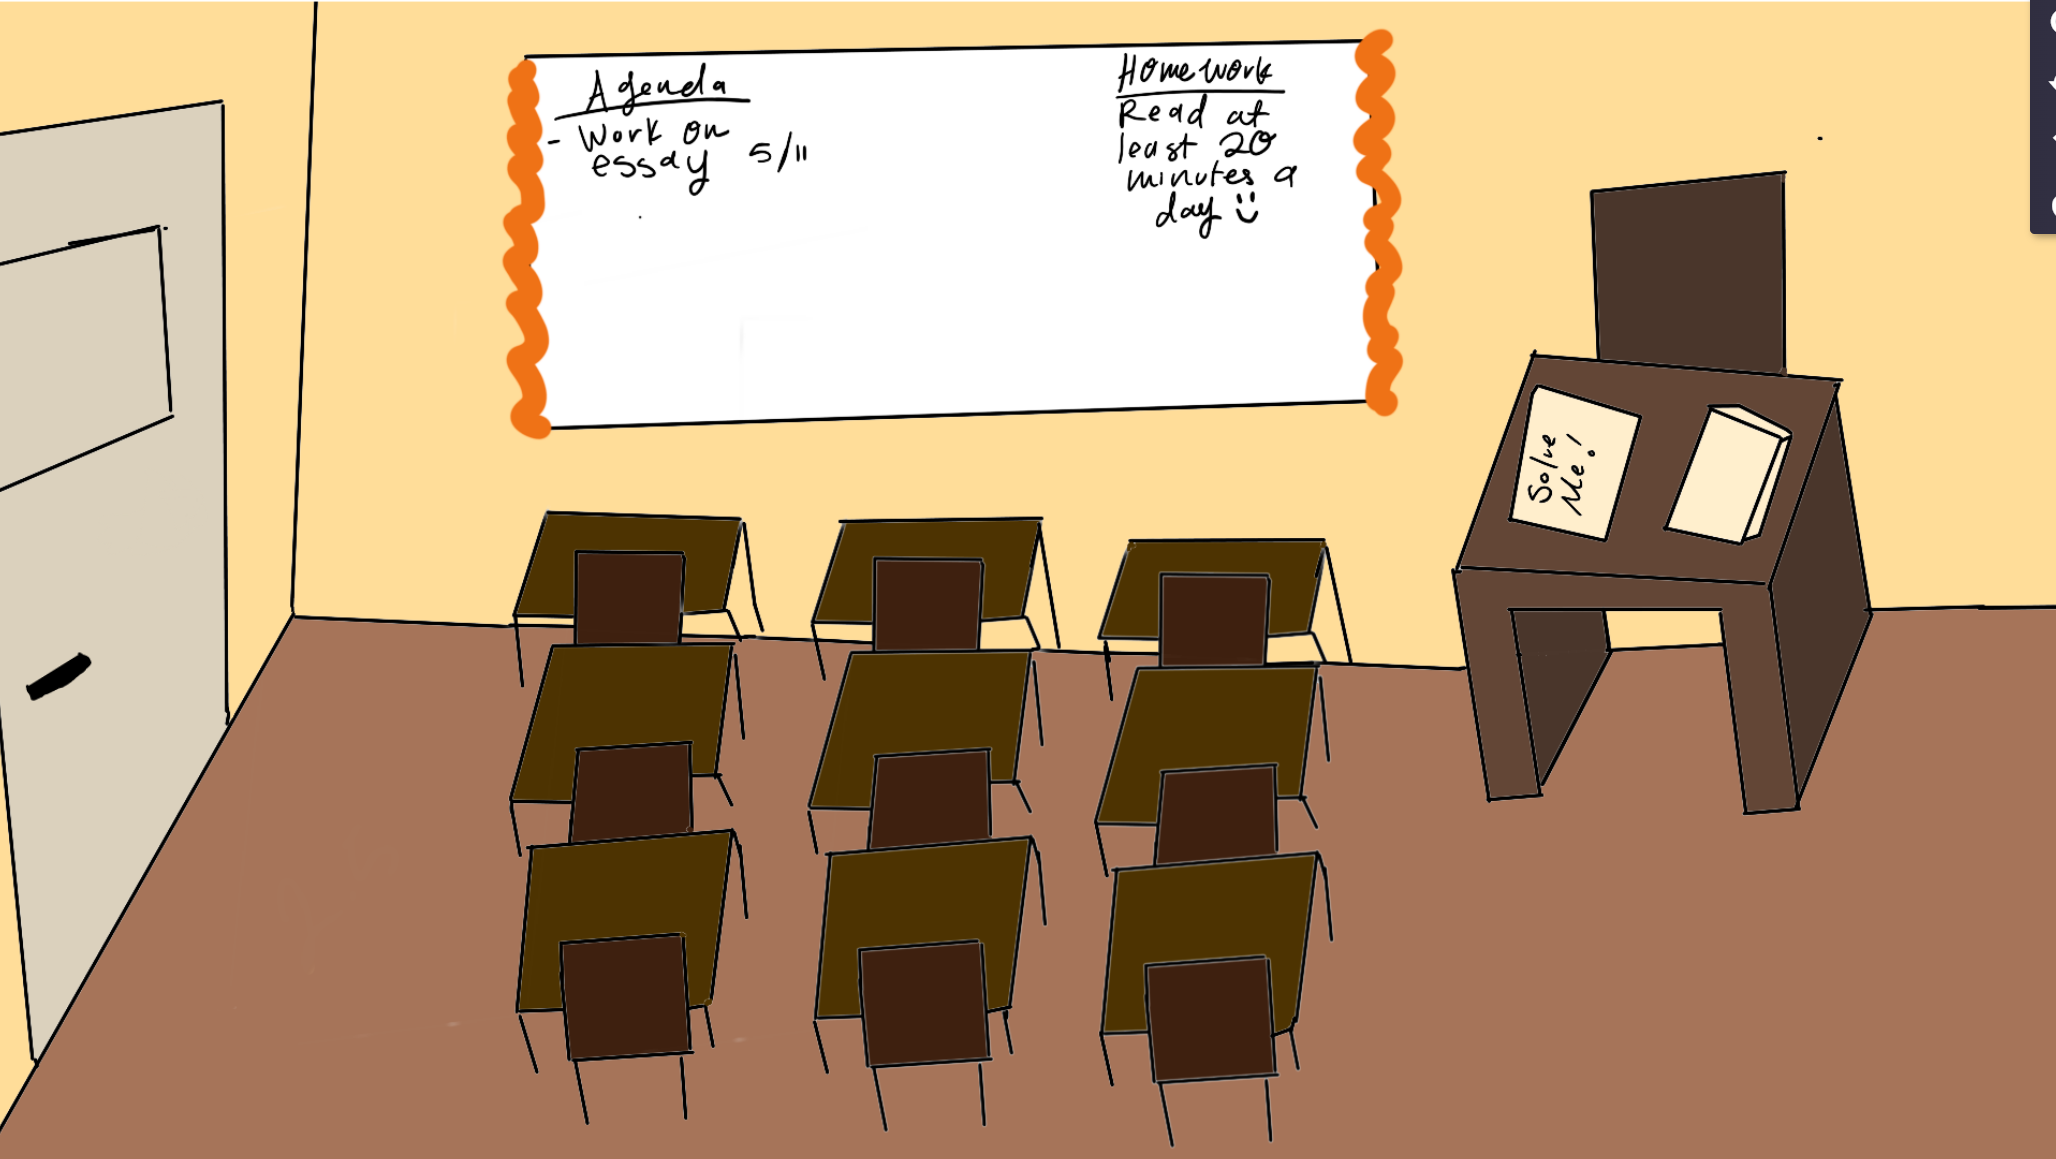 Agenda
- Work on
essay 5/11
Homework
Read at
least 20
minutes a
day
Solve
Me!